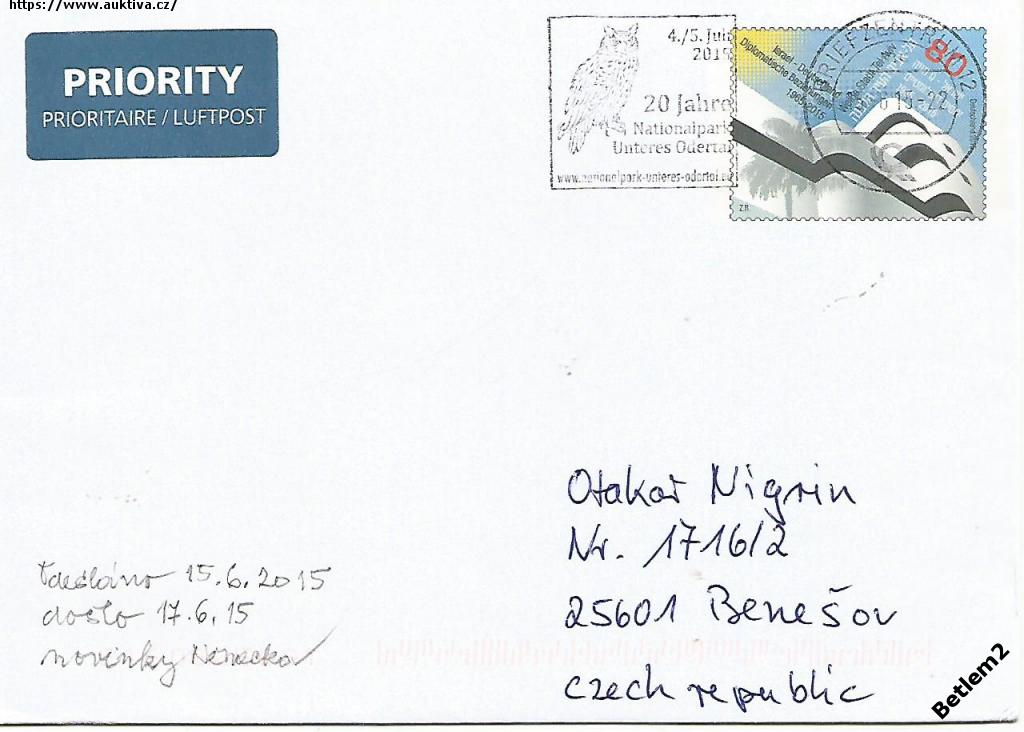 https://www.auktiva.cz/
PRIORITY
PRIORITAIRE / LUFTPOST
4./5. Juli
2015
20 Jahre
Nationalpark
Unteres Odertal
www.nationalpark-unteres-odertal.eu
Israel - Deutschland
Diplomatische Beziehungen
1965-2015
80
BRIEFZENTRUM
12
15-22
Z.R.
Otakar Nigrin
Nr. 1716/2
25601 Benešov
czech republic
15.6.2015
došlo 17.6.15
novinky Německo
Betlem2